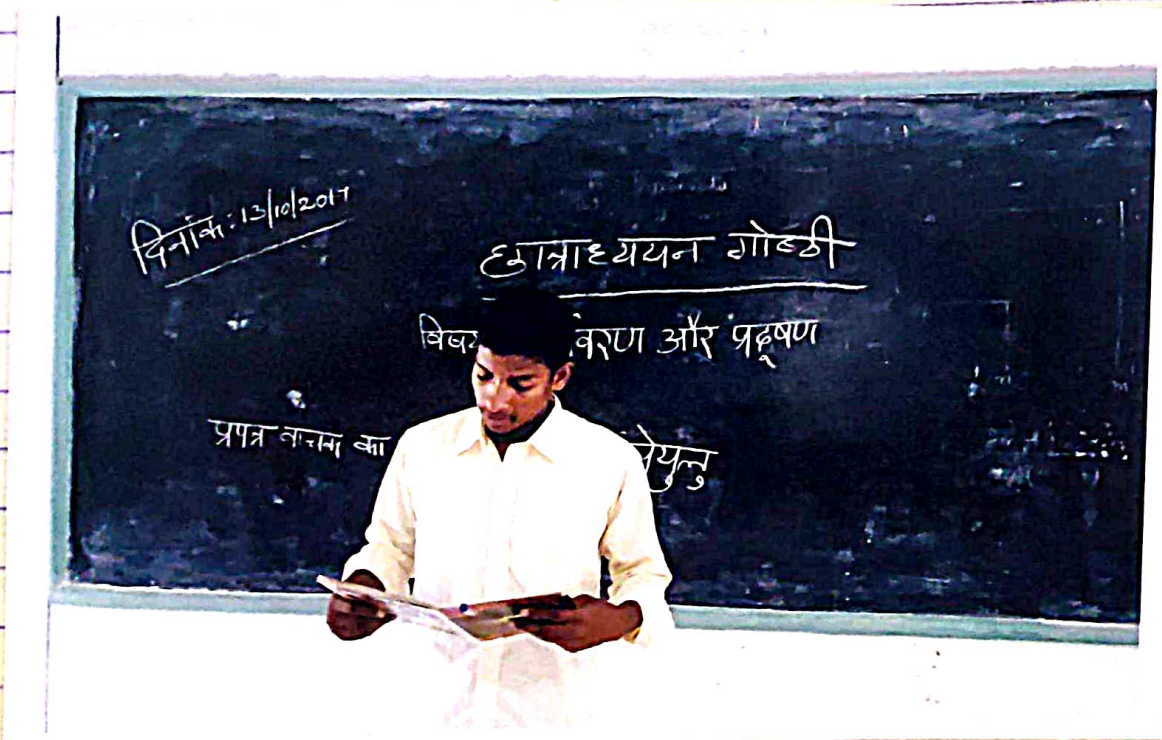 दिनांक: 13/10/2017
छात्राध्ययन गोष्ठी
वरण और प्रदूषण
प्रपत्र वाचक का